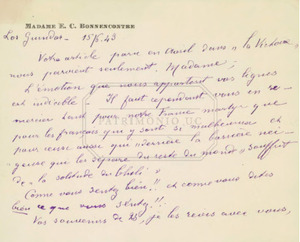 MADAME E. C. BONNENCONTRE
Los Guindos - 15/6.43
Votre article paru en dans "la
nous parvient seulement, Madame;
L'émotion que nous apportent vos lignes
est indicible - Il faut cependant vous en re-
mercier tant pour notre France martyr que
pour les français qui y sont si malheureux et
pour ceux aussi que "derrière la barrière nei-
geuse qui les sépare du reste du monde" souffrent
de "la solitude du
PATRIMONIO UC
Comme vous sentez bien!! et comme vous dites
bien ce que vous sentez!!
Vos souvenirs de je les revis avec vous,